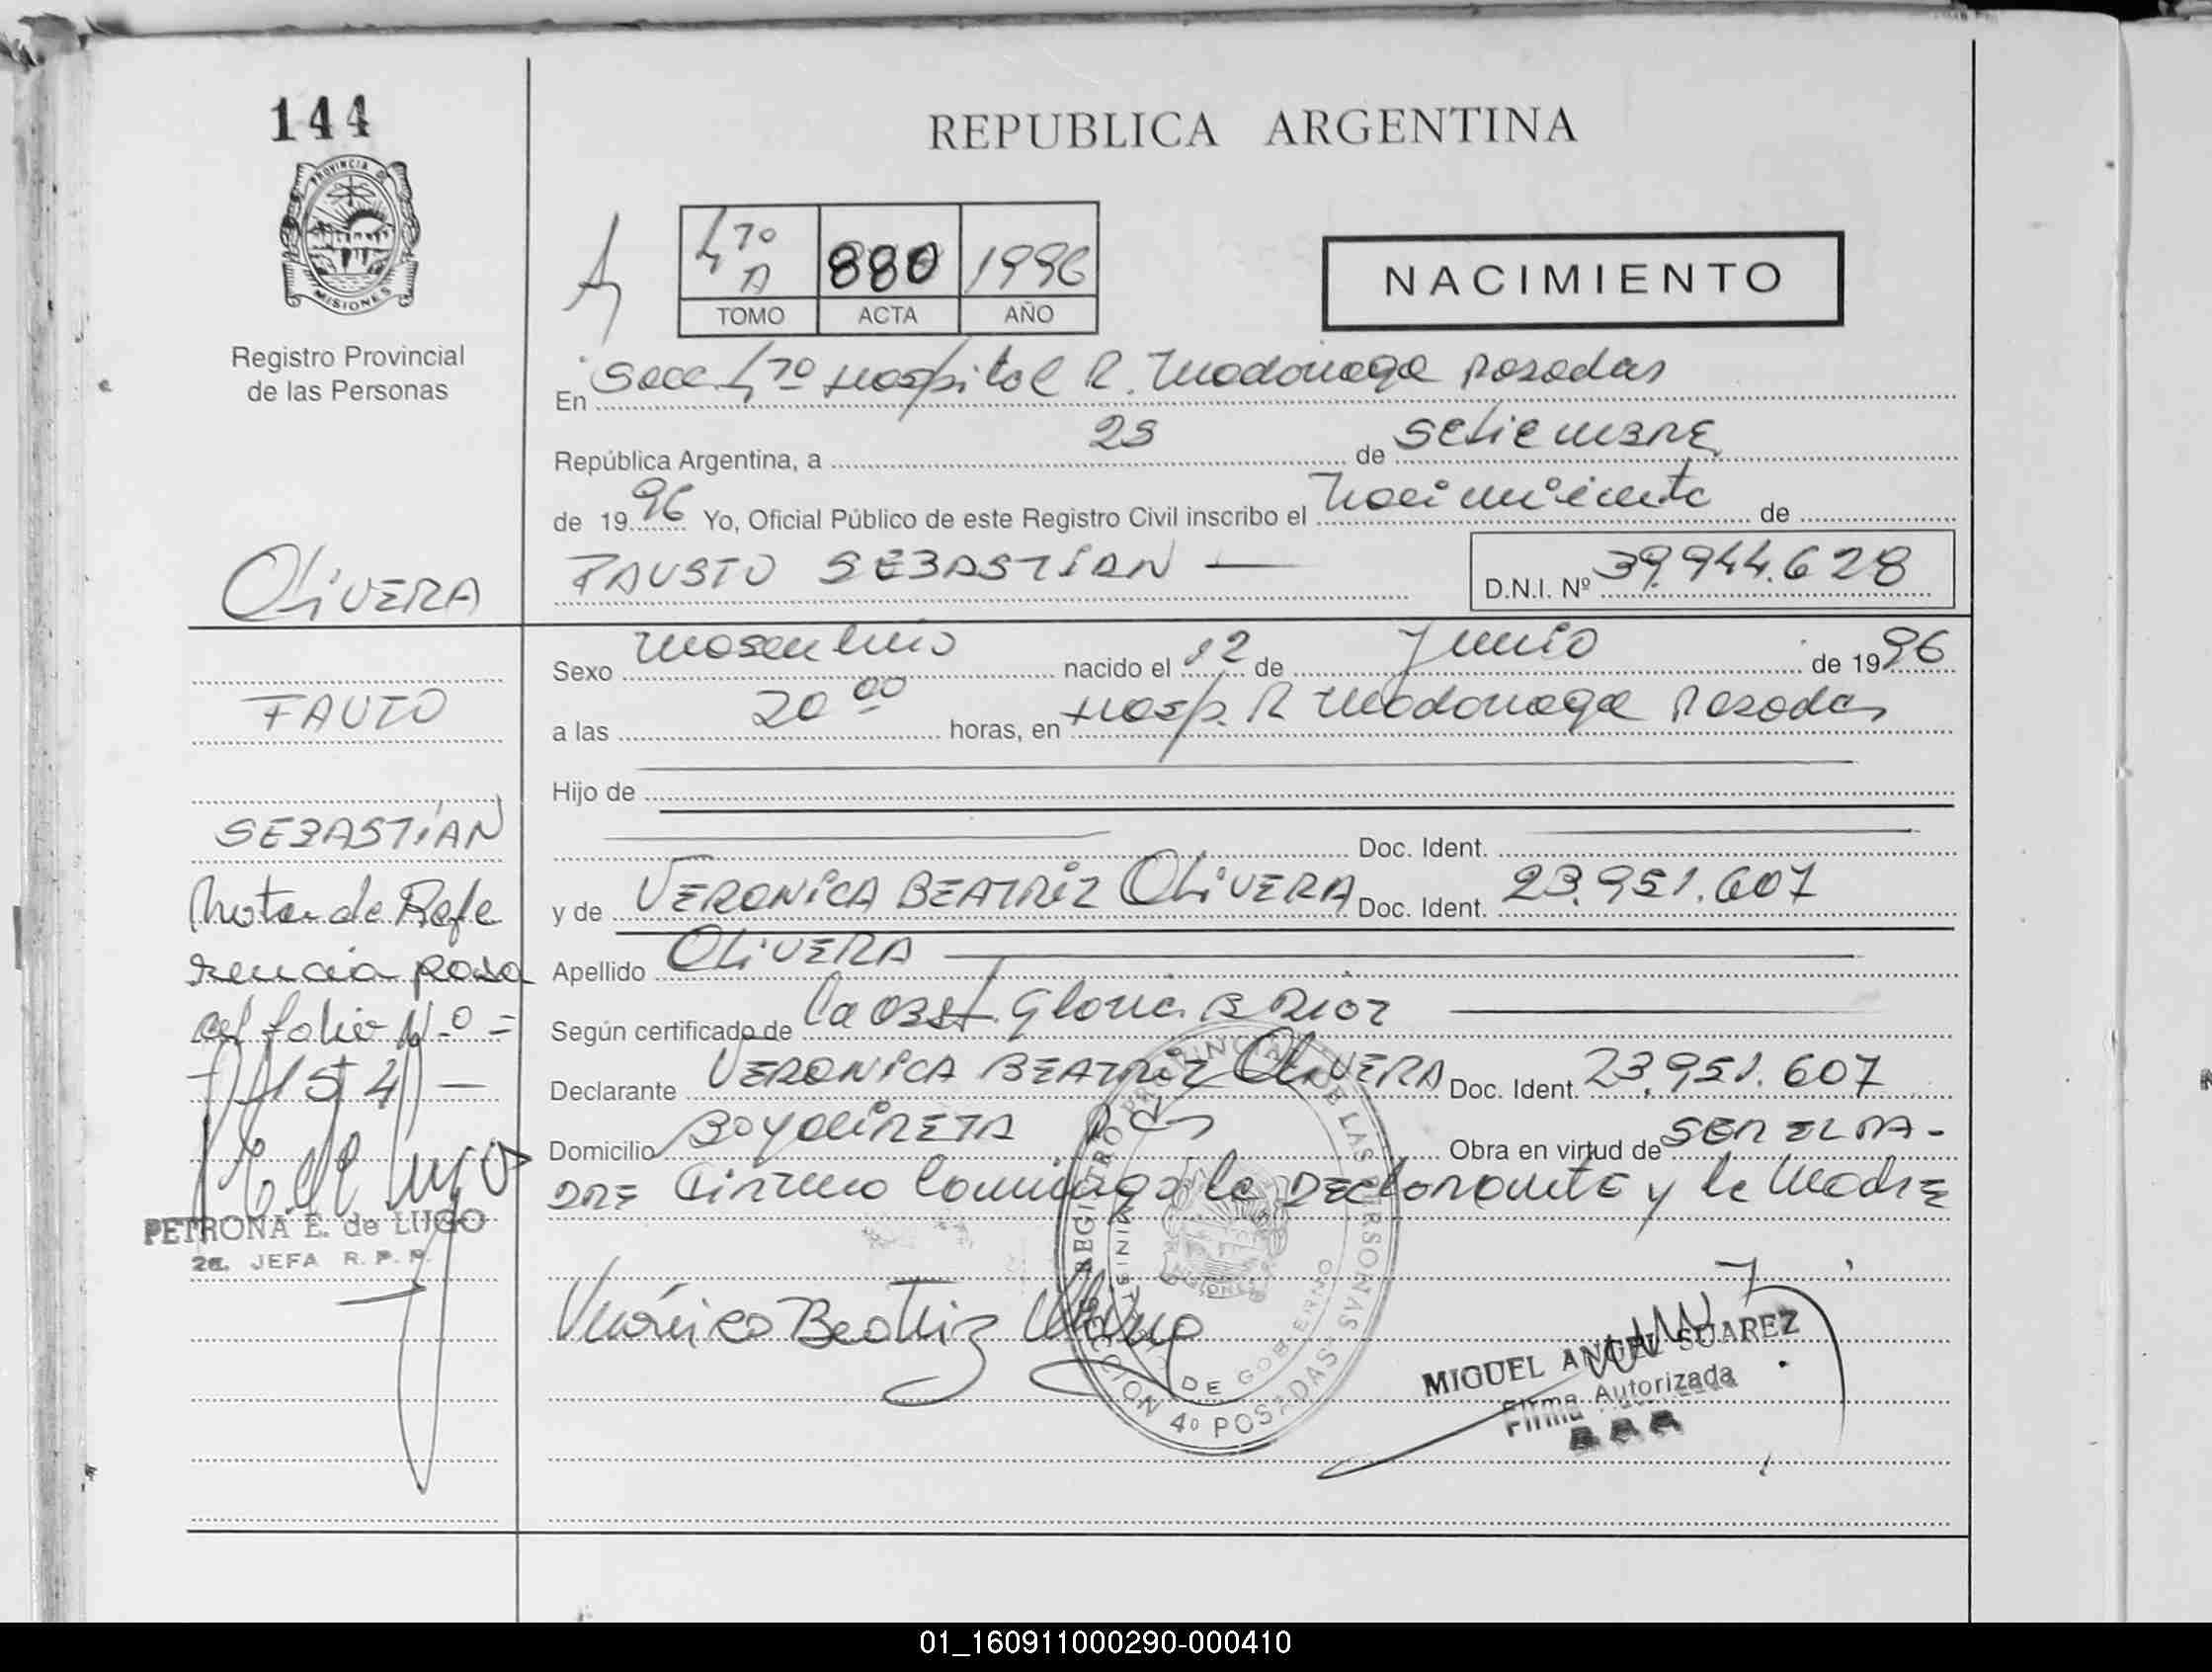 144
REPUBLICA ARGENTINA
PROVINCIA DE
MISIONES
Registro Provincial
de las Personas
4to A 880 1996
TOMO ACTA AÑO
NACIMIENTO
En Secc 4to Hospital R. Madariaga Posadas
República Argentina, a 23 de SEtiEmBRE
de 1996 Yo, Oficial Público de este Registro Civil inscribo el Nacimiento de
FAUSTO SEBASTIAN —
D.N.I. Nº 39.944.628
OLIVERA
FAUTO
SEBASTIAN
Sexo Masculino nacido el 12 de Junio de 1996
a las 20 00 horas, en Hosp. R Madariaga Posadas
Hijo de
Doc. Ident.
y de VERONICA BEATRIZ OLIVERA Doc. Ident. 23.951.607
Apellido OLIVERA
Según certificado de La Obst. Gloria B
Declarante VERONICA BEATRIZ OLIVERA Doc. Ident. 23.951.607
Domicilio Obra en virtud de SER EL PA-
DRE la DEclaranite y la Madre
Nota de Refe
rencia pasa
al folio Nº =
- 154 -
PETRONA E. de LUGO
2a. JEFA R. P. P.
Verónica Beatriz Olivera
REGISTRO PROVINCIAL DE LAS PERSONAS
SECCION 4º POSADAS
MINISTERIO DE GOBIERNO
MISIONES
MIGUEL ANGEL SUAREZ
Firma Autorizada
01_160911000290-000410